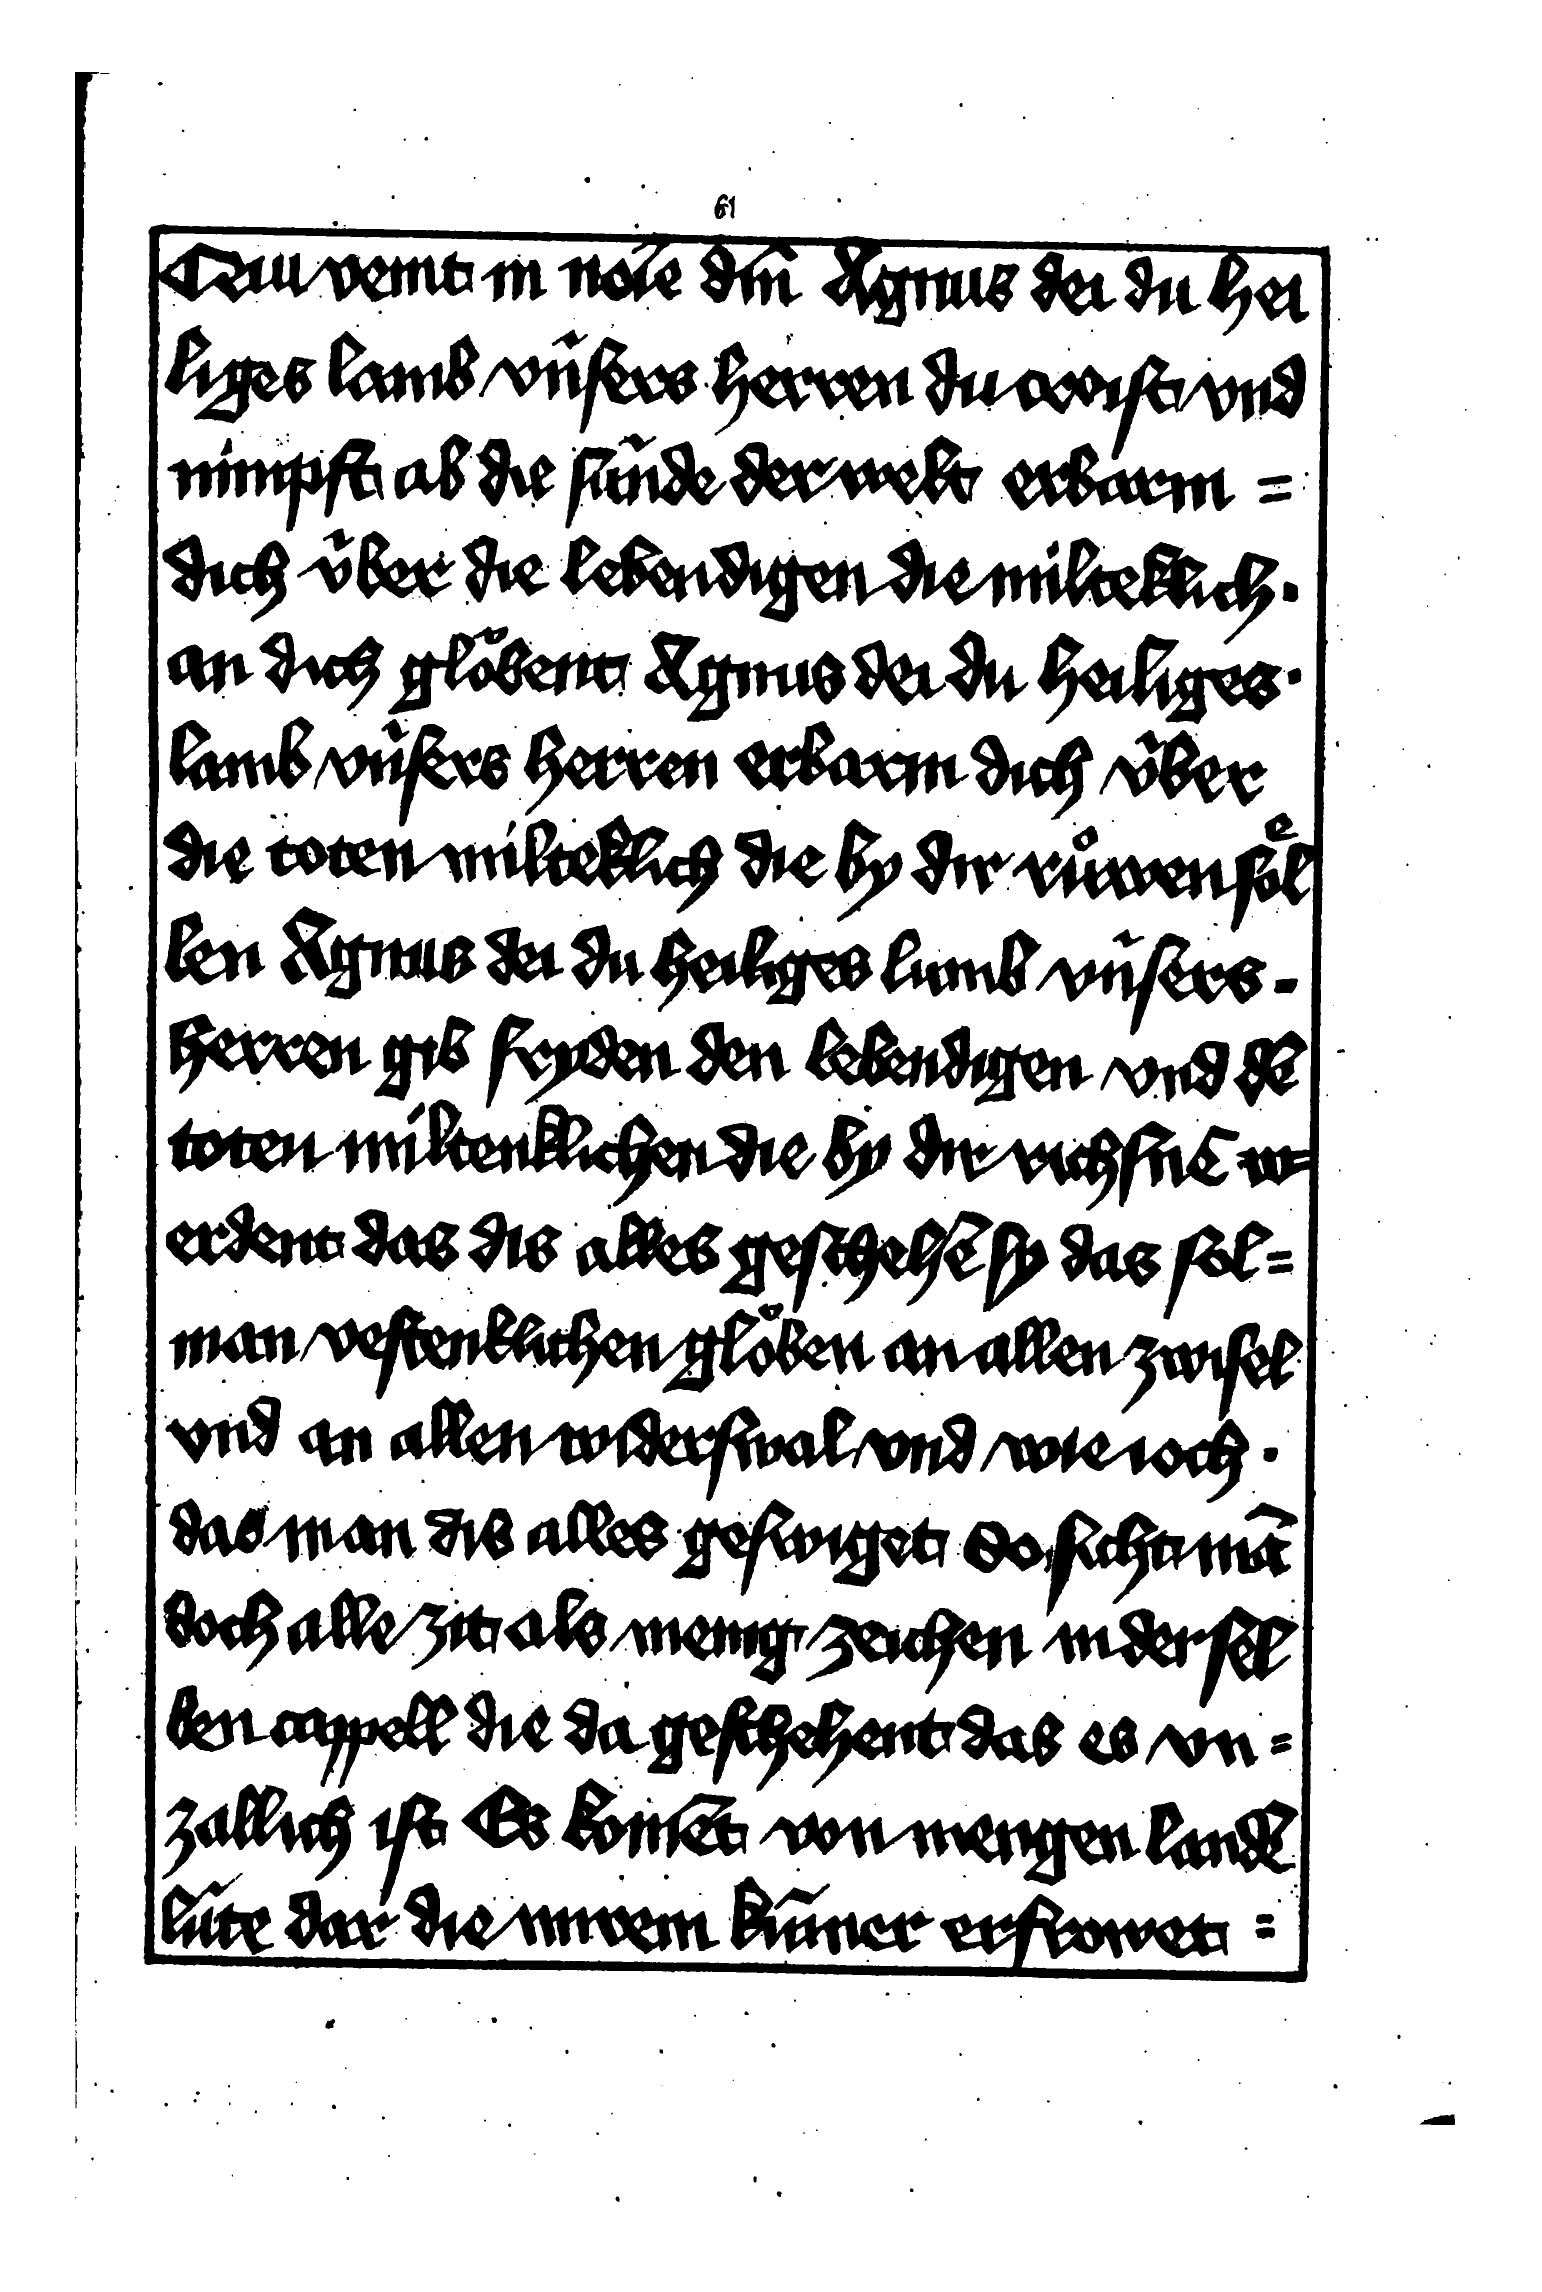 61
Qui venit in noīe dn̄i Agnus dei du hei
liges lamb vn̄sers herren du weist vnd
nimpst ab die sūnde der welt erbarm =
dich v̄ber die lebendigen die milteklich ·
an dich glöbent Agnus dei du heiliges ·
lamb vn̄sers herren erbarm dich v̄ber
die toten milteklich die by dir růwen söl
len Agnus dei du heiliges lamb vn̄sers -
herren gib fryden den lebendigen vnd dē
toten miltenklichen die by dir richsnē w=
erdent das dis alles geschehē sy das sol =
man vestenklichen glöben an allen zwifel
vnd an allen widerswal vnd wie ioch ·
das man dis alles geswiget So sicht mā
doch alle zit als menig zeichen in der sel
ben cappell die da geschehent das es vn =
zallich ist Es komēt von mengen landē
lūte dar die in irem kūmer erfrowet =